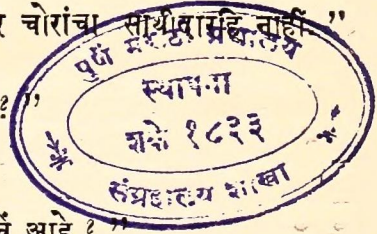 र चोरांचा साथीदारहि नाहीं.”
पुणें मराठी ग्रंथालय
स्थापना
?”
शके १८३३
संग्रहालय शाखा
आहे ? ”